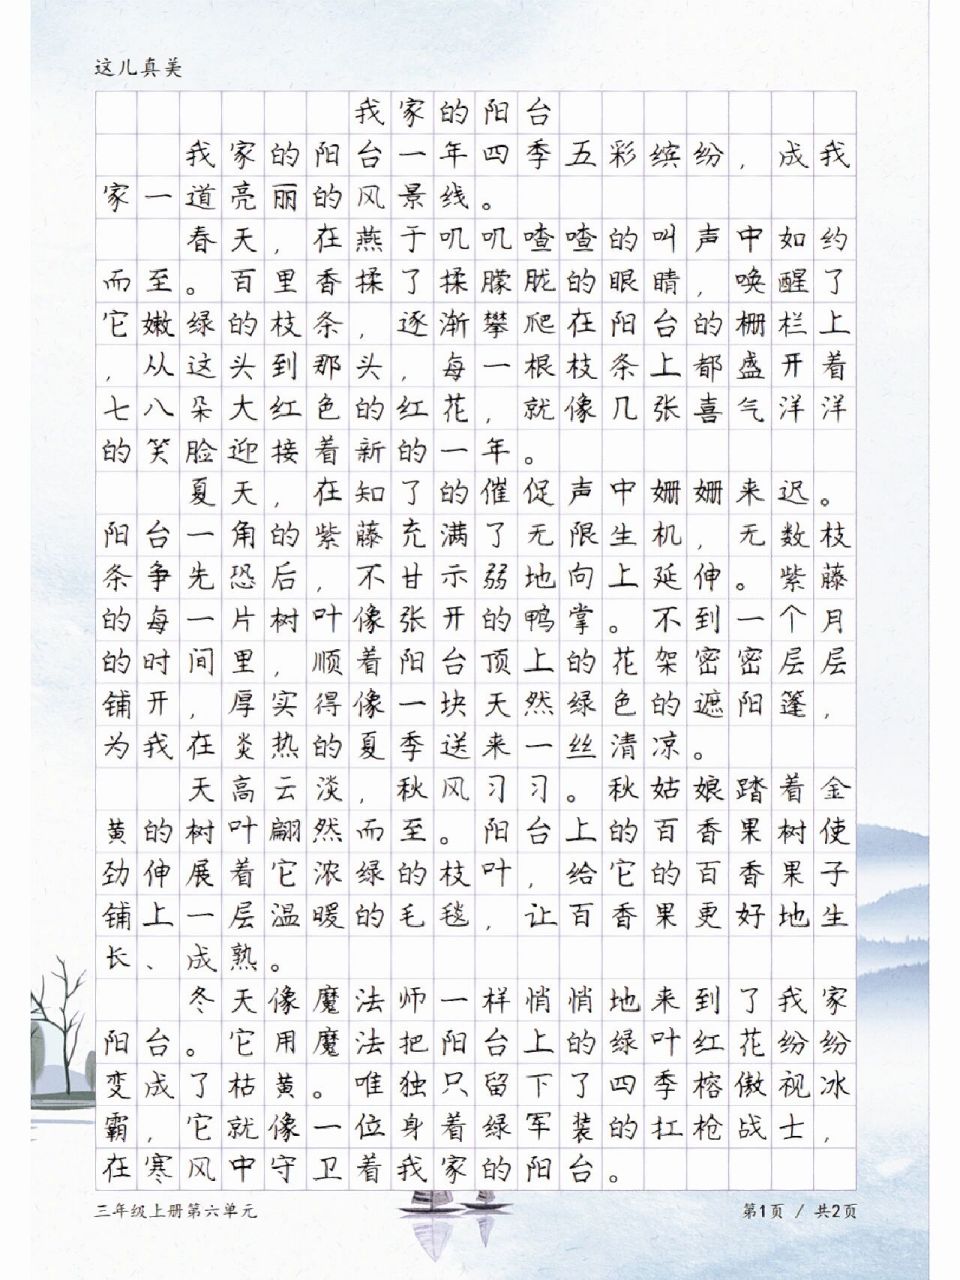 这儿真美
我家的阳台
我家的阳台一年四季五彩缤纷，成我
家一道亮丽的风景线。
春天，在燕于叽叽喳喳的叫声中如约
而至。百里香揉了揉朦胧的眼睛，唤醒了
它嫩绿的枝条，逐渐攀爬在阳台的栅栏上
，从这头到那头，每一根枝条上都盛开着
七八朵大红色的红花，就像几张喜气洋洋
的笑脸迎接着新的一年。
夏天，在知了的催促声中姗姗来迟。
阳台一角的紫藤充满了无限生机，无数枝
条争先恐后，不甘示弱地向上延伸。紫藤
的每一片树叶像张开的鸭掌。不到一个月
的时间里，顺着阳台顶上的花架密密层层
铺开，厚实得像一块天然绿色的遮阳篷，
为我在炎热的夏季送来一丝清凉。
天高云淡，秋风习习。秋姑娘踏着金
黄的树叶翩然而至。阳台上的百香果树使
劲伸展着它浓绿的枝叶，给它的百香果子
铺上一层温暖的毛毯，让百香果更好地生
长、成熟。
冬天像魔法师一样悄悄地来到了我家
阳台。它用魔法把阳台上的绿叶红花纷纷
变成了枯黄。唯独只留下了四季榕傲视冰
霸，它就像一位身着绿军装的扛枪战士，
在寒风中守卫着我家的阳台。
三年级上册第六单元
第1页 / 共2页